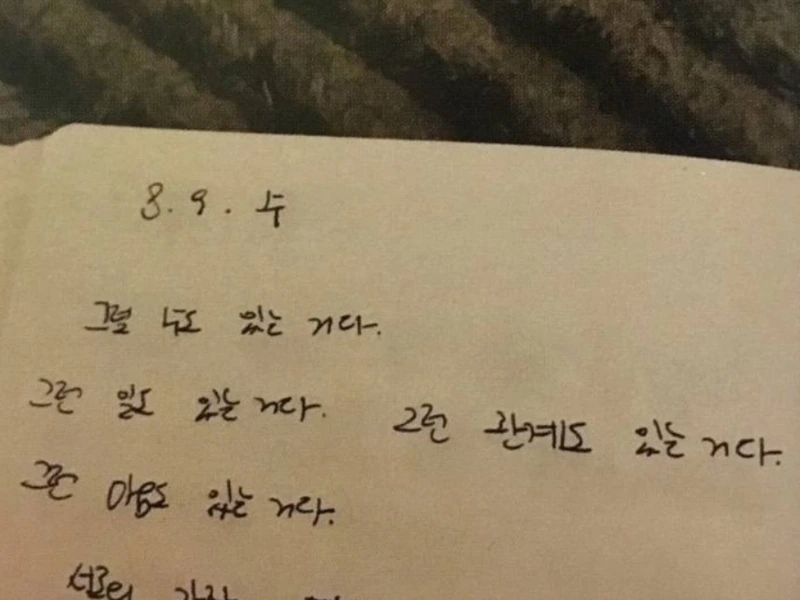 8. 9. 수
그럴 수도 있는 거다.
그런 일도 있는 거다.
그런 관계도 있는 거다.
그런 마음도 있는 거다.
서로의